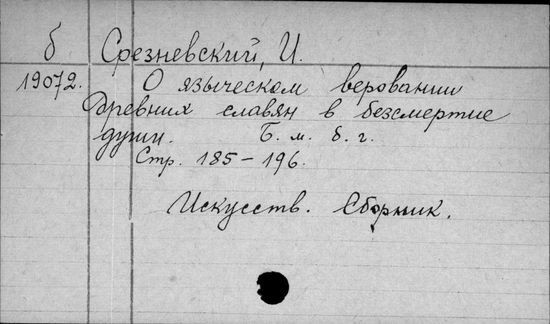 б Срезневский, И.
19072. О языческом веровании
древних славян в безсмертие
души. Б. м. б. г.
Стр. 185-196.
Искусств. Сборник.